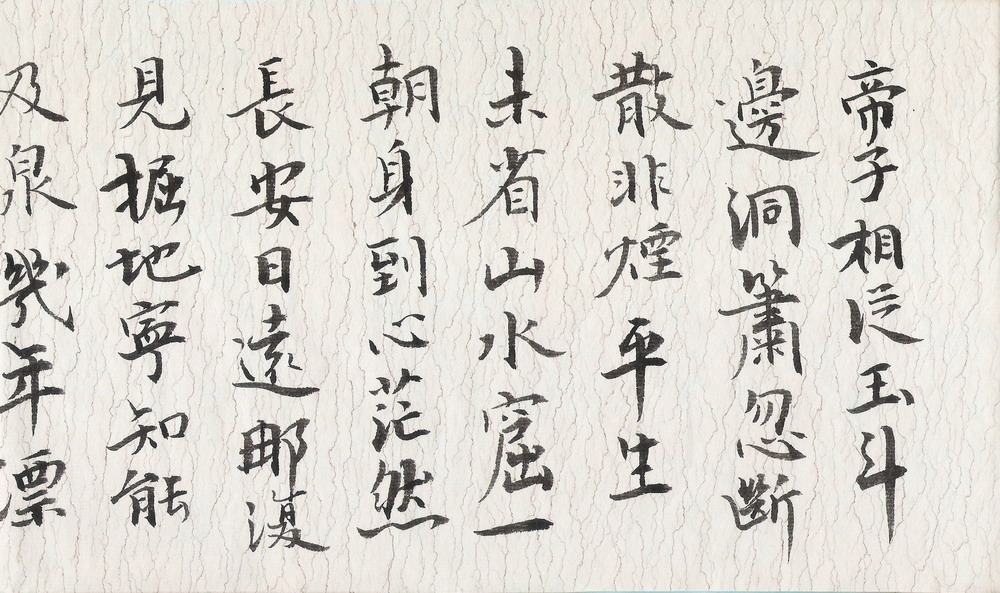 帝子相從玉斗
邊洞簫忽斷
散非煙平生
未省山水窟一
朝身到心茫然
長安日遠那復
見掘地寧知能
及泉幾年漂